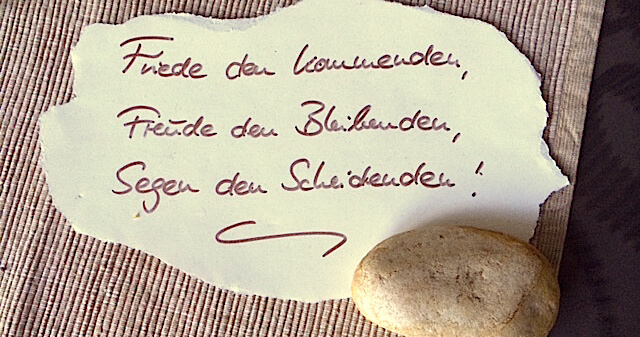 Friede den kommenden,
Freude den Bleibenden,
Segen den Scheidenden!